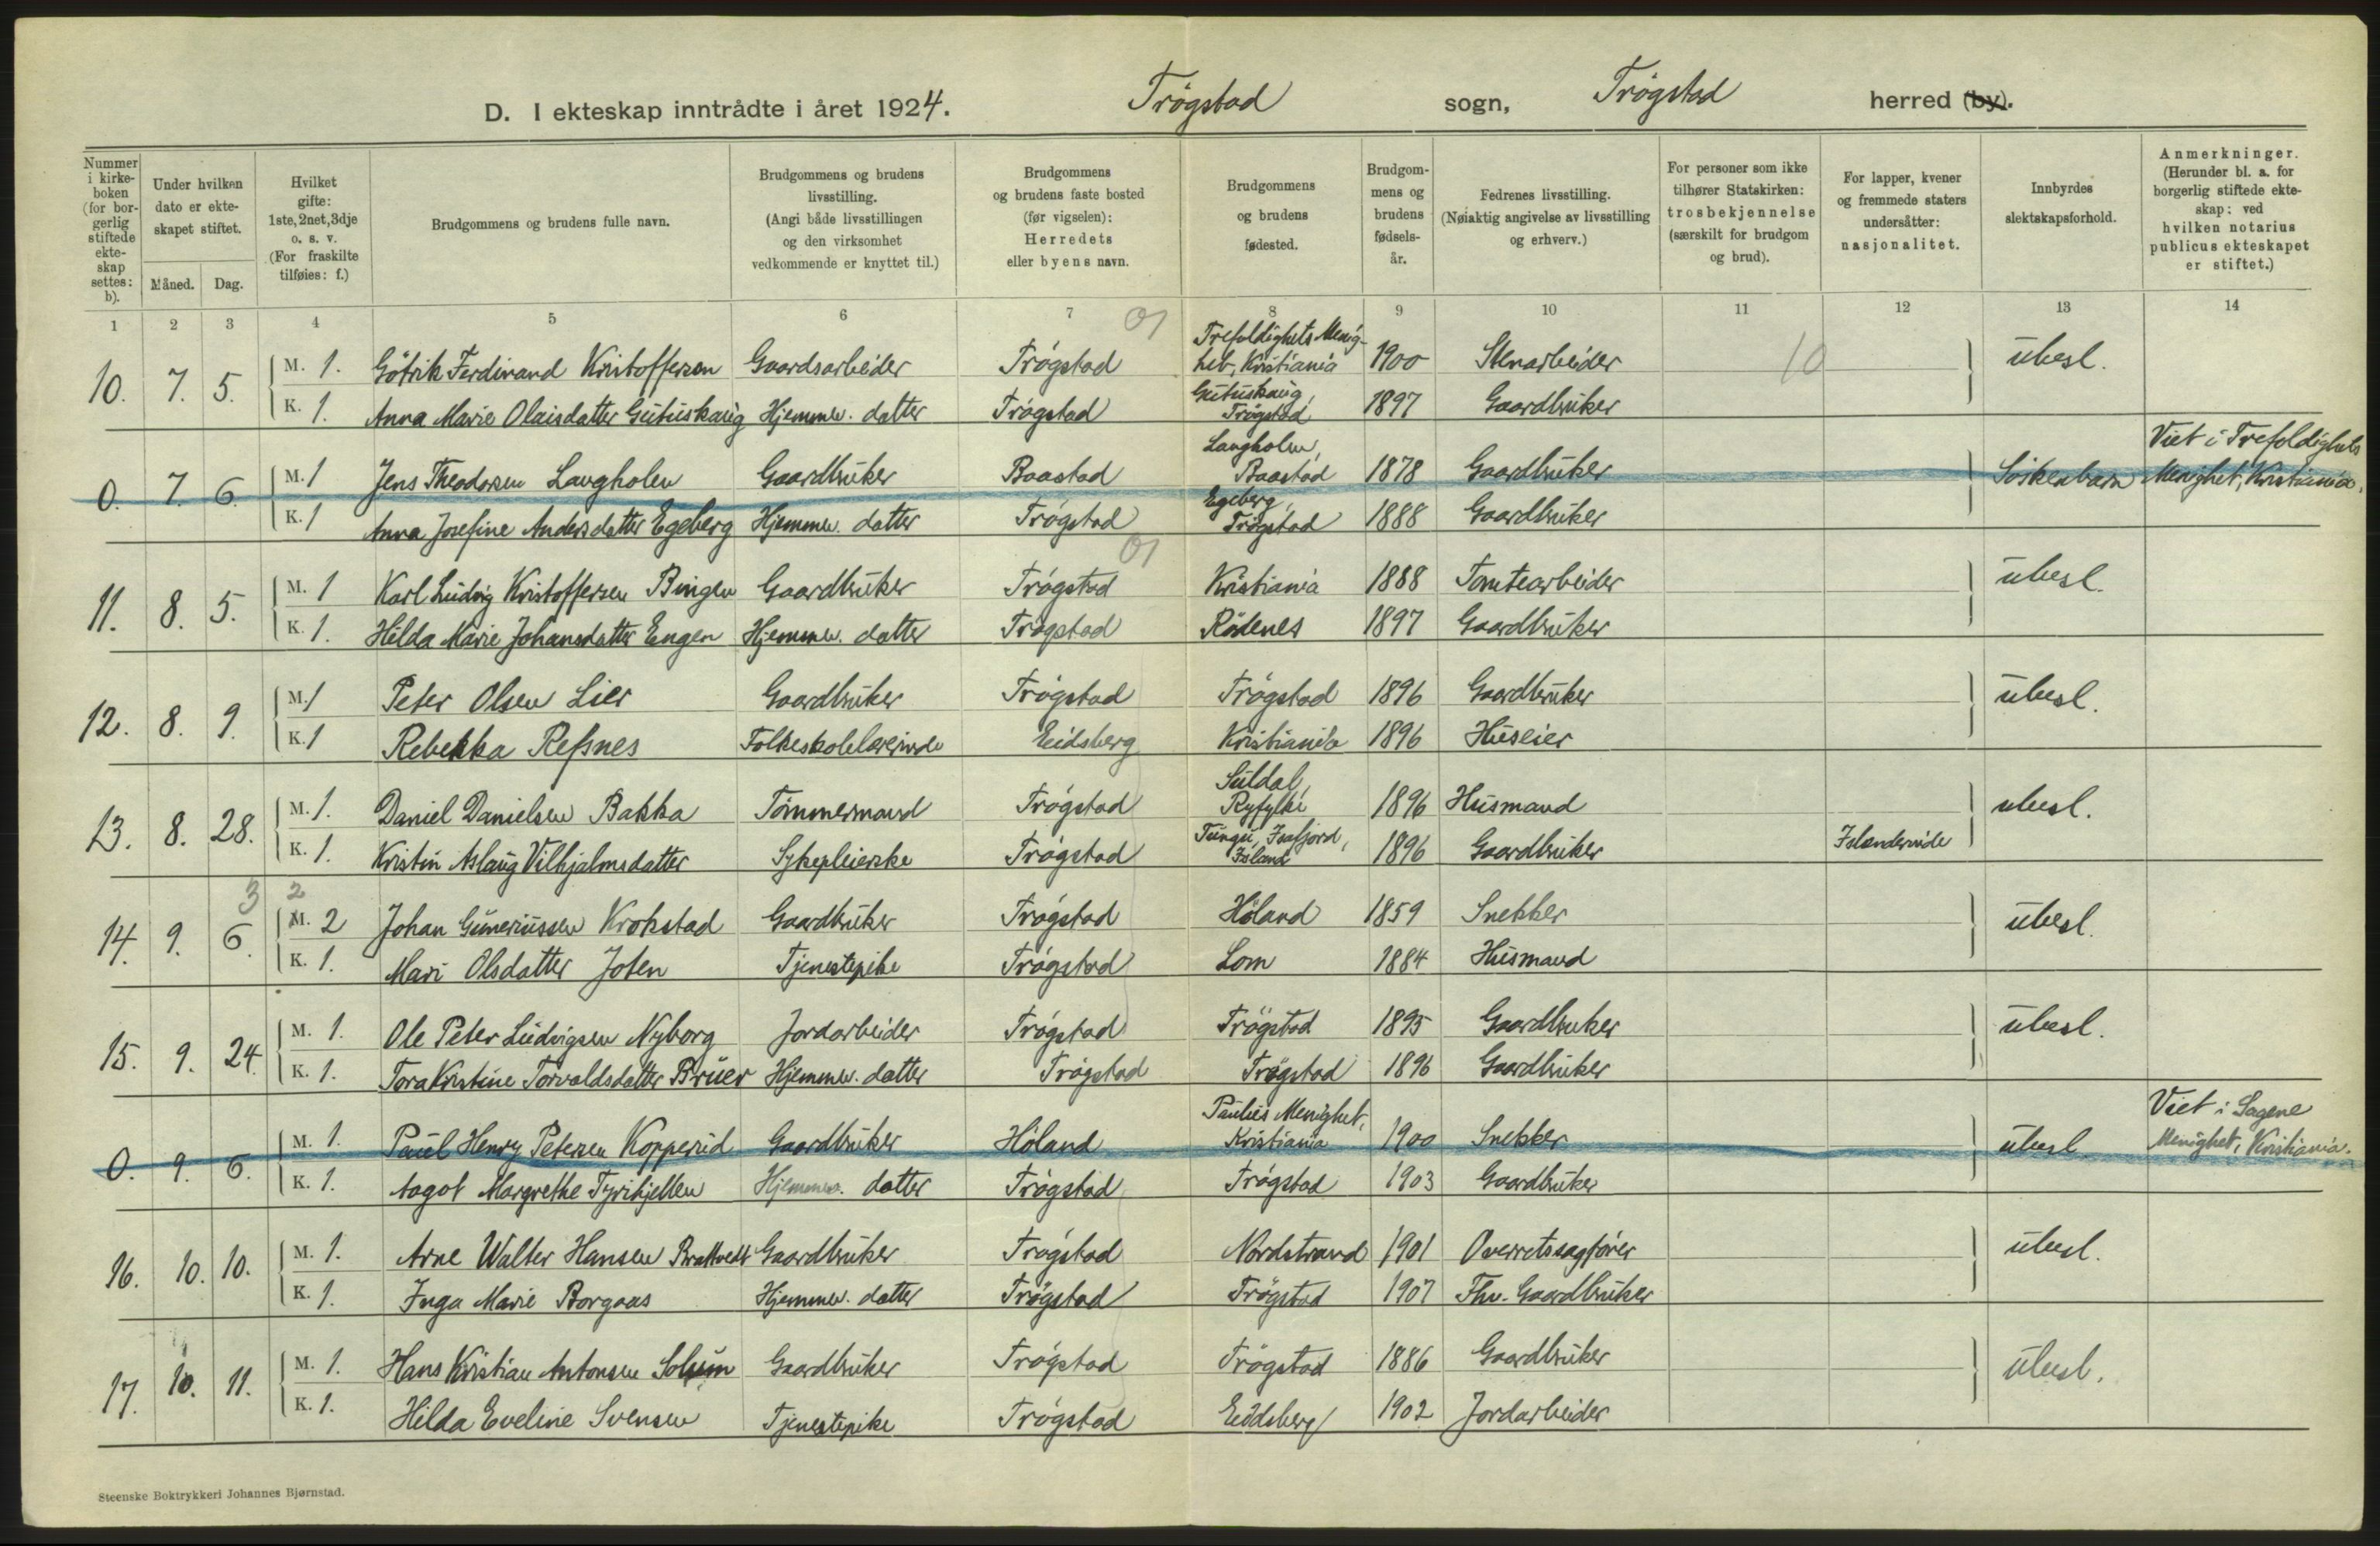 D. I ekteskap inntrådte i året 1924. Trögstad sogn, Trögstad herred (by).
Nummer i kirkeboken (for borgerlig stiftede ekteskap settes: b).
Under hvilken dato er ekteskapet stiftet.
Måned. Dag.
Hvilket gifte: 1ste, 2net, 3dje o. s. v. (For fraskilte tilføies: f.)
Brudgommens og brudens fulle navn.
Brudgommens og brudens livsstilling. (Angi både livsstillingen og den virksomhet vedkommende er knyttet til.)
Brudgommens og brudens faste bosted (før vigselen): Herredets eller byens navn.
Brudgommens og brudens fødested.
Brudgommens og brudens fødselsår.
Fedrenes livsstilling. (Nøiaktig angivelse av livsstilling og erhverv.)
For personer som ikke tilhører Statskirken: trosbekjennelse (særskilt for brudgom og brud).
For lapper, kvener og fremmede staters undersåtter: nasjonalitet.
Innbyrdes slektskapsforhold.
Anmerkninger. (Herunder bl. a. for borgerlig stiftede ekteskap: ved hvilken notarius publicus ekteskapet er stiftet.)
1 2 3 4 5 6 7 8 9 10 11 12 13 14
10. 7. 5. M. 1. Götrik Ferdinand Kristoffersen Gaardsarbeider Trögstad Trefoldighets Menighet, Kristiania 1900 Stenarbeider 10 übesl.
K. 1. Anna Marie Olaisdatter Gütuskaüg Hjemmev. datter Trögstad Gütuskaug, Trögstad 1897 Gaardbrüker
0. 7. 6. M. 1 Jens Theodorsen Langholen Gaardbrüker Baastad Langholen, Baastad 1878 Gaardbrüker Söskenbarn Viet i Trefoldighets Menighet, Kristiania.
K. 1 Anna Josefine Andersdatter Egeberg Hjemmev. datter Trögstad Egeberg, Trögstad 1888 Gaardbrüker
11. 8. 5. M. 1 Karl Lüdvig Kristoffersen Bingen Gaardbrüker Trögstad Kristiania 1888 Tomtearbeider übesl.
K. 1. Hilda Marie Johansdatter Engen Hjemmev. datter Trögstad Rödenes 1897 Gaardbrüker
12. 8. 9. M. 1 Peter Olsen Lier Gaardbrüker Trögstad Trögstad 1896 Gaardbrüker übesl.
K. 1 Rebekka Refsnes Folkeskolelærerinde Eidsberg Kristiania 1896 Hüseier
13. 8. 28. M. 1. Daniel Danielsen Bakka Tömmermand Trögstad Süldal, Ryfylke 1896 Hüsmand übesl.
K. 1. Kristin Aslaüg Vilhjalmsdatter Sykepleierske Trögstad Tüngü, Isafjord, Island 1896 Gaardbrüker Islenderinde
3 2
14. 9. 6. M. 2 Johan Günerüssen Krokstad Gaardbrüker Trögstad Höland 1859 Snekker übesl.
K. 1. Mari Olsdatter Joten Tjenestepike Trögstad Lom 1884 Hüsmand
15. 9. 24. M. 1. Ole Peter Lüdvigsen Nyborg Jordarbeider Trögstad Trögstad 1895 Gaardbruker übesl.
K. 1. Tora Kristine Torvaldsdatter Brüer Hjemmev. datter Trögstad Trögstad 1896 Gaardbrüker
0. 9. 6. M. 1. Paül Henry Petersen Kopperud Gaardbrüker Höland Paulus Menighet, Kristiania 1900 Snekker übesl. Viet i Sagene Menighet, Kristiania.
K. 1. Aagot Margrethe Tyrihjellen Hjemmev. datter Trögstad Trögstad 1903 Gaardbrüker
16. 10. 10. M. 1. Arne Walter Hansen Brattvedt Gaardbrüker Trögstad Nordstrand 1901 Overretssagförer übesl.
K. 1. Inga Marie Borgaas Hjemmev. datter Trögstad Trögstad 1907 Fhv. Gaardbrüker
17. 10. 11. M. 1. Hans Kristian Antonsen Solum Gaardbrüker Trögstad Trögstad 1886 Gaardbrüker übesl.
K. 1. Hilda Eveline Svensen Tjenestepike Trögstad Eidsberg 1902 Jordarbeider
Steenske Boktrykkeri Johannes Bjørnstad.